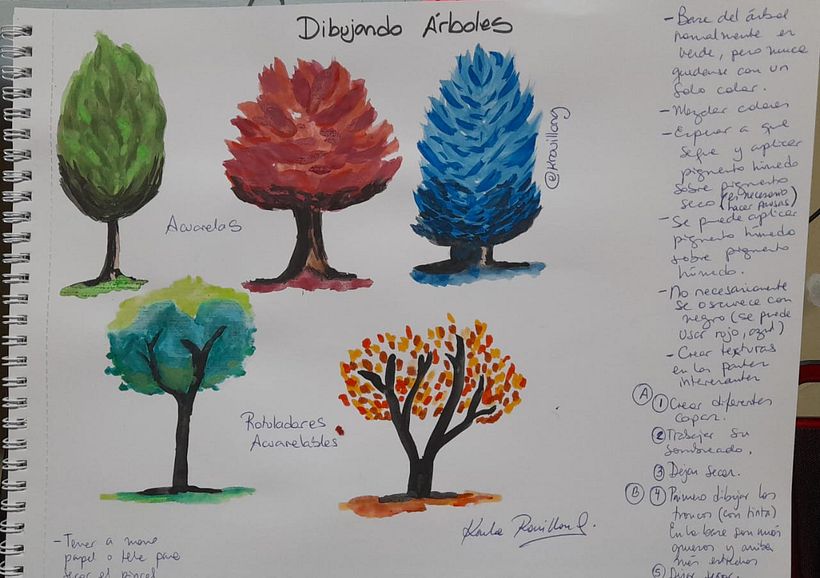 Dibujando Árboles
@krouillong
Acuarelas
Rotuladores
Acuarelables
Karla Rouillon G.
- Tener a mano
papel o tela para
secar el pincel
- Base del árbol
normalmente en
verde, pero nunca
quedarse con un
solo color.
- Mezclar colores
- Esperar a que
seque y aplicar
pigmento húmedo
sobre pigmento
seco (es necesario
hacer pausas)
- Se puede aplicar
pigmento húmedo
sobre pigmento
húmedo.
- No necesariamente
se oscurece con
negro (se puede
usar rojo, azul)
- Crear texturas
en las partes
interesantes
A 1 Crear diferentes
copas.
2 Trabajar su
sombreado.
3 Dejar secar.
B 4 Primero dibujar los
troncos (con tinta)
En la base son más
gruesos y arriba
más estrechos
5 Dejar secar.